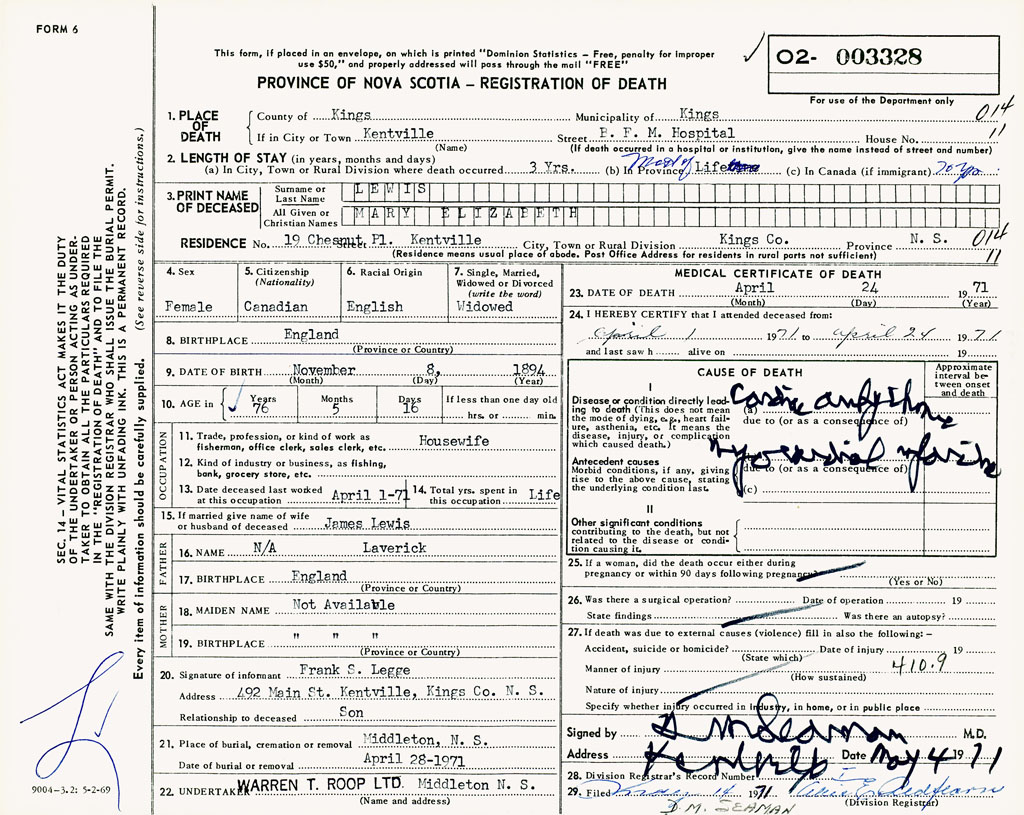 FORM 6
This form, if placed in an envelope, on which is printed "Dominion Statistics – Free, penalty for improper
use $50," and properly addressed will pass through the mail "FREE"
PROVINCE OF NOVA SCOTIA – REGISTRATION OF DEATH
02- 003328
For use of the Department only
1. PLACE OF DEATH County of Kings Municipality of Kings 014
If in City or Town Kentville Street B. F. M. Hospital House No. 11
(Name) (If death occurred in a hospital or institution, give the name instead of street and number)
2. LENGTH OF STAY (in years, months and days)
(a) In City, Town or Rural Division where death occurred 3 Yrs. (b) In Province Most of Life (c) In Canada (if immigrant) 70 yrs
3. PRINT NAME OF DECEASED Surname or Last Name LEWIS
All Given or Christian Names MARY ELIZABETH
RESIDENCE No. 19 Chesnut Pl. Kentville City, Town or Rural Division Kings Co. Province N. S. 014
(Residence means usual place of abode. Post Office Address for residents in rural parts not sufficient) 11
4. Sex
Female
5. Citizenship
(Nationality)
Canadian
6. Racial Origin
English
7. Single, Married,
Widowed or Divorced
(write the word)
Widowed
8. BIRTHPLACE England
(Province or Country)
9. DATE OF BIRTH November 8, 1894
(Month) (Day) (Year)
10. AGE in Years Months Days If less than one day old
76 5 16 hrs. or min.
OCCUPATION
11. Trade, profession, or kind of work as
fisherman, office clerk, sales clerk, etc. Housewife
12. Kind of industry or business, as fishing,
bank, grocery store, etc.
13. Date deceased last worked
at this occupation April 1-71
14. Total yrs. spent in
this occupation Life
15. If married give name of wife
or husband of deceased James Lewis
FATHER
16. NAME N/A Laverick
17. BIRTHPLACE England
(Province or Country)
MOTHER
18. MAIDEN NAME Not Available
19. BIRTHPLACE " " "
(Province or Country)
20. Signature of informant Frank S. Legge
Address 492 Main St. Kentville, Kings Co. N. S.
Relationship to deceased Son
21. Place of burial, cremation or removal Middleton, N. S.
Date of burial or removal April 28-1971
22. UNDERTAKER WARREN T. ROOP LTD. Middleton N. S.
(Name and address)
MEDICAL CERTIFICATE OF DEATH
23. DATE OF DEATH April 24 1971
(Month) (Day) (Year)
24. I HEREBY CERTIFY that I attended deceased from:
April 1 1971 to April 24 1971
and last saw h alive on 19
CAUSE OF DEATH
Approximate
interval be-
tween onset
and death
I
Disease or condition directly lead-
ing to death (This does not mean
the mode of dying, e.g., heart fail-
ure, asthenia, etc. It means the
disease, injury, or complication
which caused death.)
(a)
due to (or as a consequence of)
Antecedent causes
Morbid conditions, if any, giving
rise to the above cause, stating
the underlying condition last.
myocardial
due to (or as a consequence of)
(c)
II
Other significant conditions
contributing to the death, but not
related to the disease or condi-
tion causing it.
25. If a woman, did the death occur either during
pregnancy or within 90 days following pregnancy
(Yes or No)
26. Was there a surgical operation? Date of operation 19
State findings Was there an autopsy?
27. If death was due to external causes (violence) fill in also the following: –
Accident, suicide or homicide? Date of injury 19
(State which)
Manner of injury 410.9
(How sustained)
Nature of injury
Specify whether injury occurred in Industry, in home, or in public place
Signed by D M Seaman M.D.
Address Kentville Date May 4 1971
28. Division Registrar's Record Number
29. Filed 14 1971
(Division Registrar)
D.M. SEAMAN
SEC. 14 – VITAL STATISTICS ACT MAKES IT THE DUTY
OF THE UNDERTAKER OR PERSON ACTING AS UNDER-
TAKER TO OBTAIN ALL THE PARTICULARS REQUIRED
IN THE "REGISTRATION OF DEATH" AND TO FILE THE
SAME WITH THE DIVISION REGISTRAR WHO SHALL ISSUE THE BURIAL PERMIT.
WRITE PLAINLY WITH UNFADING INK. THIS IS A PERMANENT RECORD.
Every item of information should be carefully supplied. (See reverse side for instructions.)
9004-3.2: 5-2-69